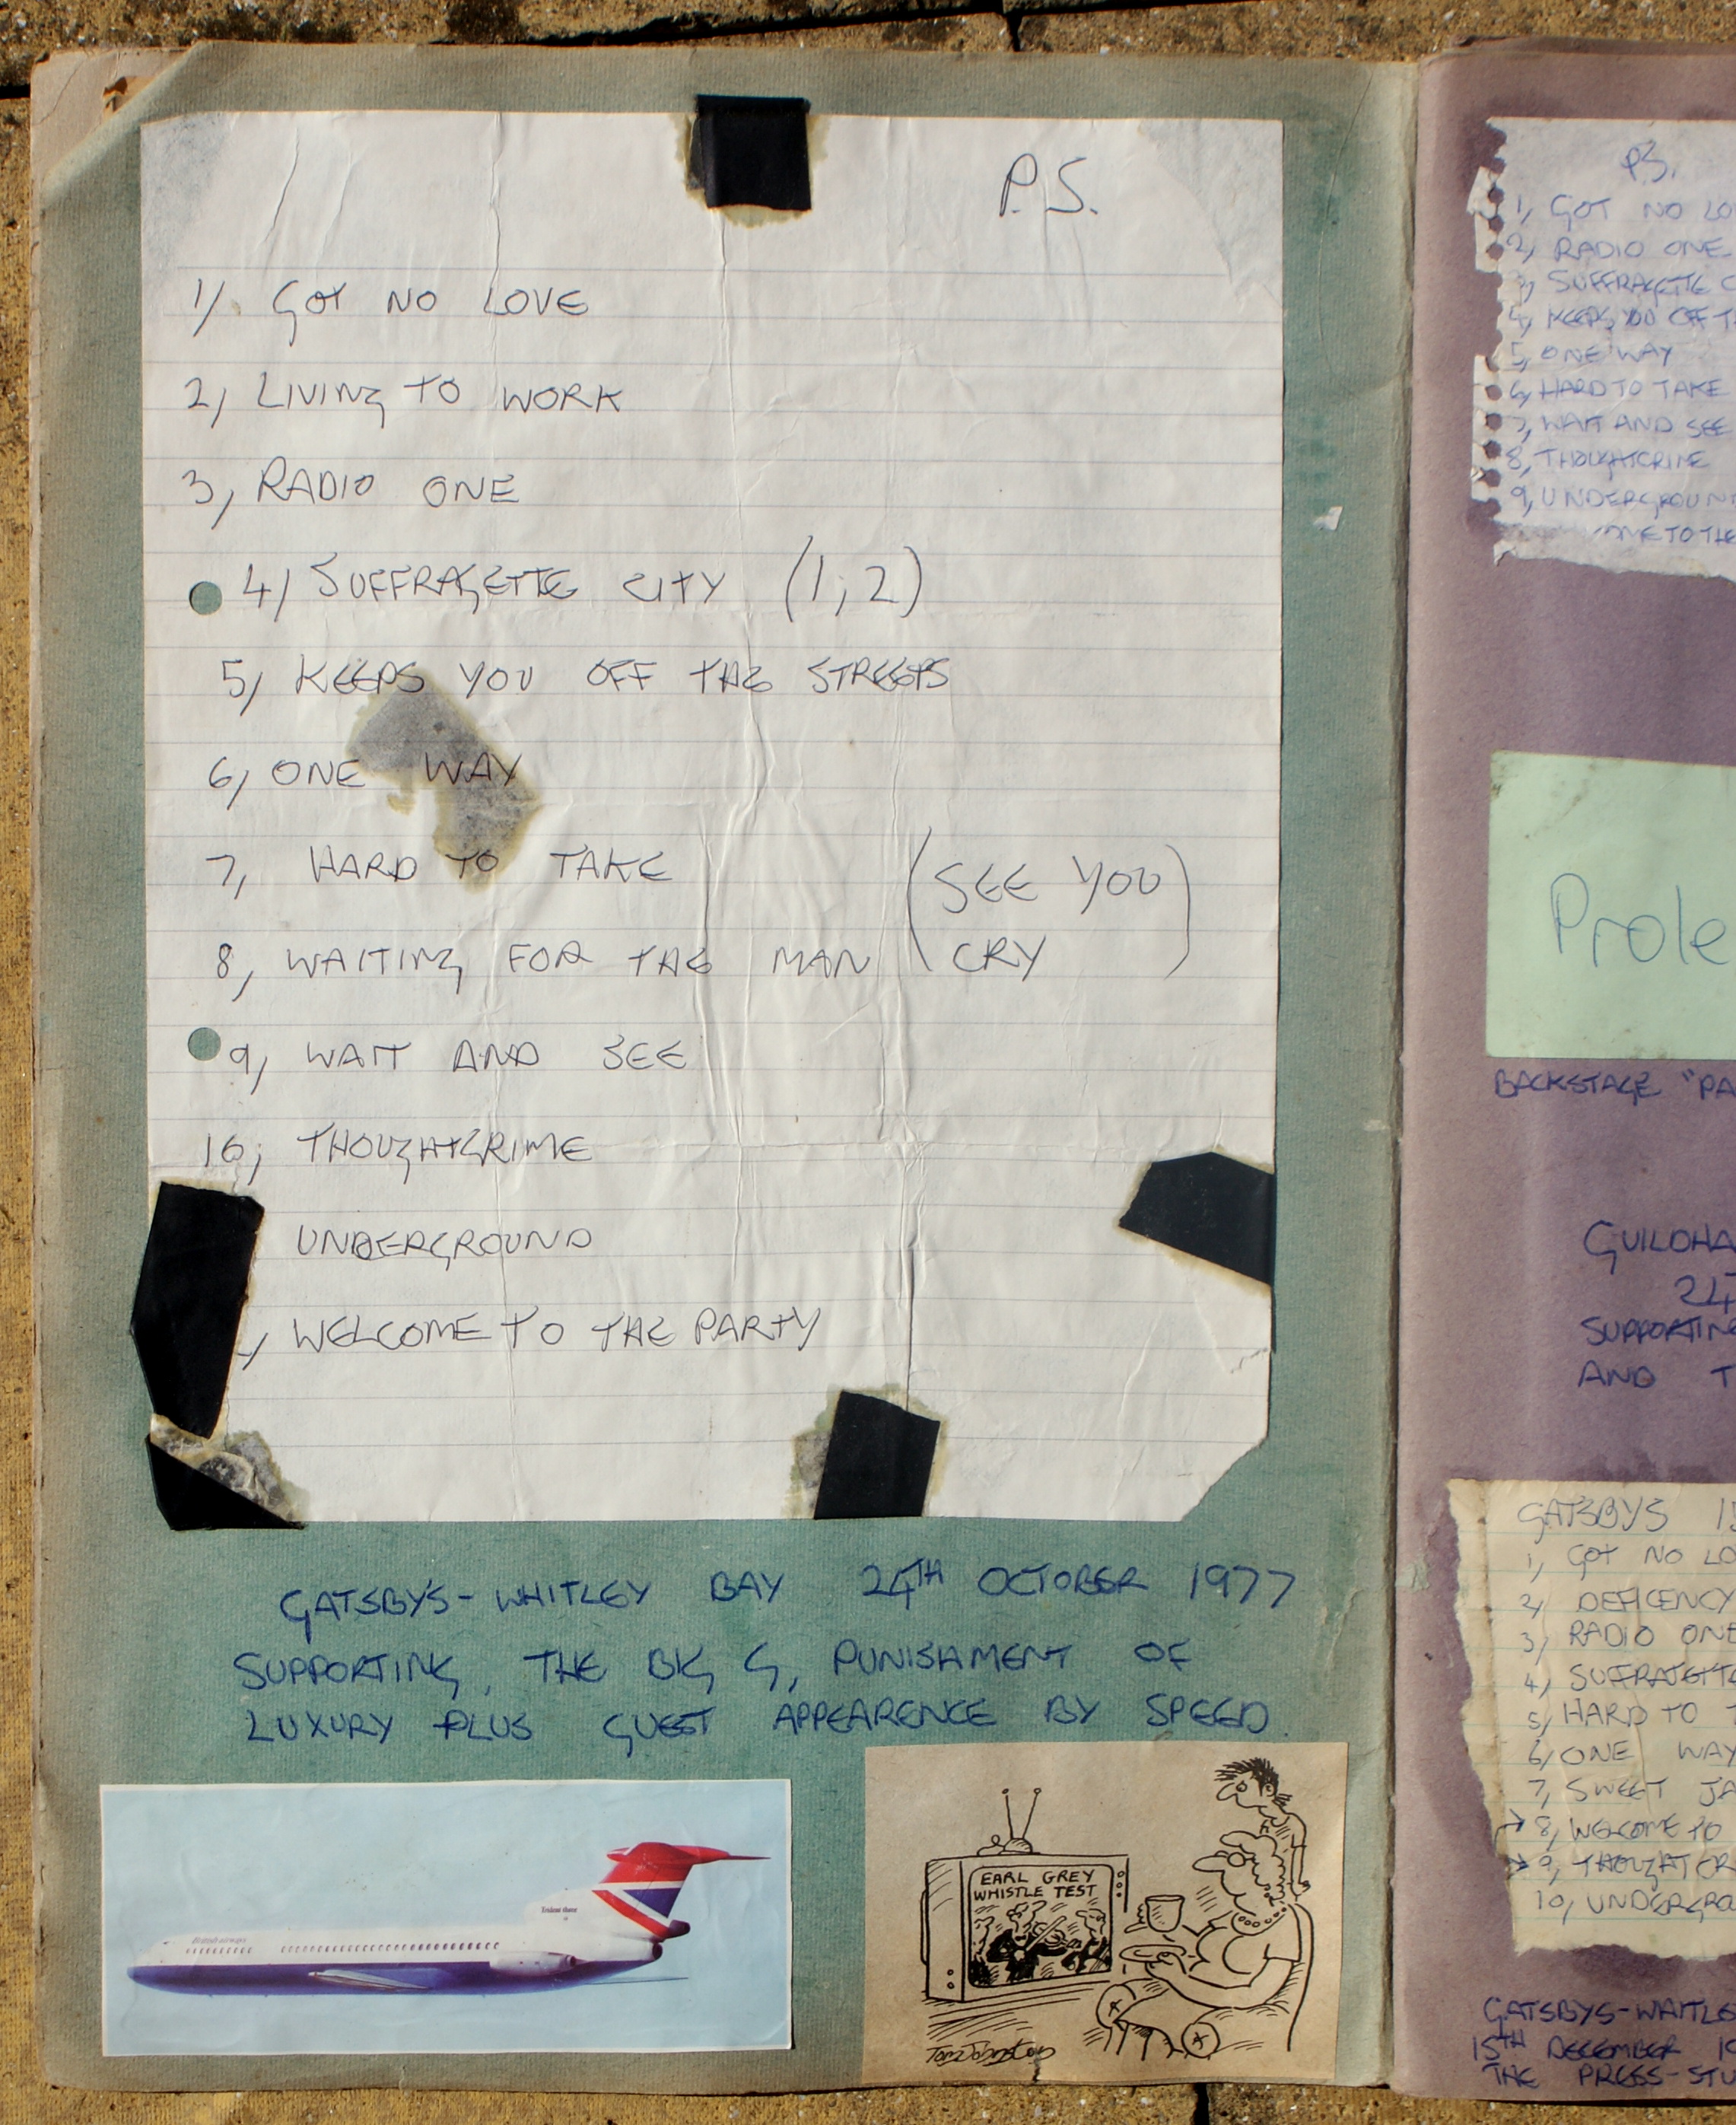 P.S.
1/. GOT NO LOVE
2, LIVING TO WORK
3, RADIO ONE
4/ SUFFRAGETTE CITY (1,2)
5/ KEEPS YOU OFF THE STREETS
6, ONE WAY
7, HARD TO TAKE
8, WAITING FOR THE MAN
(SEE YOU
CRY)
9, WAIT AND SEE
10, THOUGHTCRIME
UNDERGROUND
, WELCOME TO THE PARTY
GATSBY'S - WHITLEY BAY 24TH OCTOBER 1977
SUPPORTING, THE BIG G, PUNISHMENT OF
LUXURY PLUS GUEST APPEARENCE BY SPEED.
British airways
Trident three
EARL GREY
WHISTLE TEST
Tom Johnston
P.S.
1, GOT NO LO
2, RADIO ONE
3, SUFFRAGETTE C
4, KEEPS YOU OFF TH
5, ONE WAY
6, HARD TO TAKE
7, WAIT AND SEE
8, THOUGHTCRIME
9, UNDERGROUN
OME TO THE
Prole
BACKSTAGE "PA
GUILDHA
24
SUPPORTING
AND T
GATSBYS 15
1, GOT NO LO
2, DEFICENCY
3, RADIO ONE
4, SUFFRAGETTE
5, HARD TO T
6, ONE WAY
7, SWEET JA
→ 8, WELCOME TO
→ 9, THOUGHTCR
10, UNDERGRO
GATSBYS - WHITLE
15TH DECEMBER 19
THE PRESS-STU